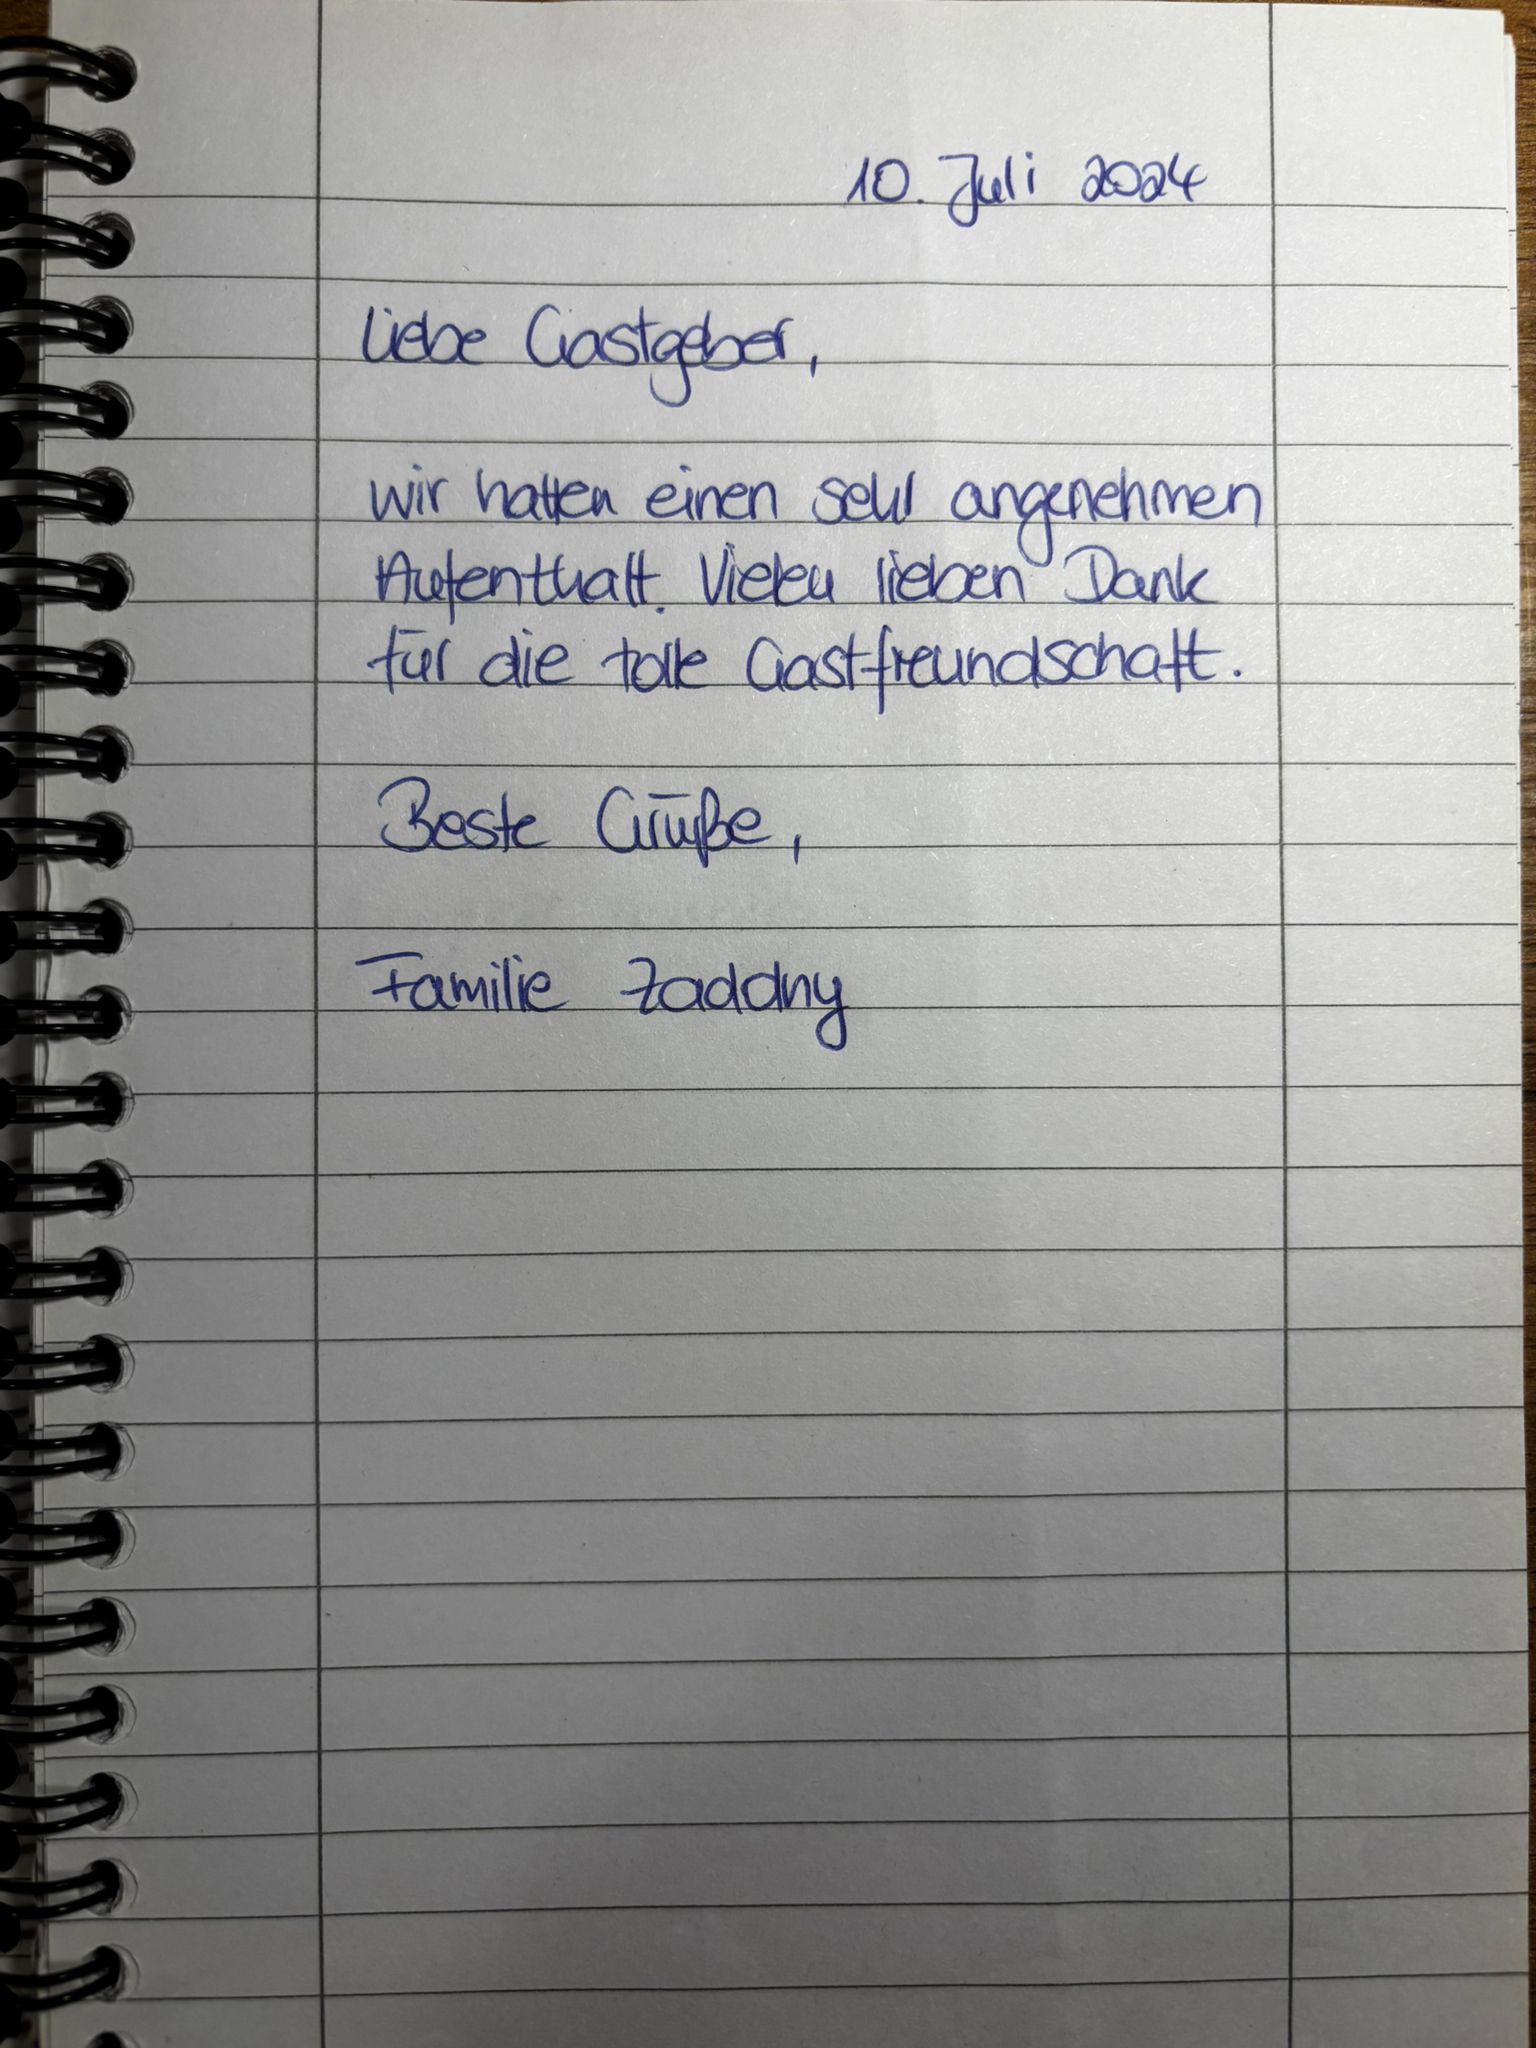 10. Juli 2024
Liebe Gastgeber,
wir hatten einen sehr angenehmen
Aufenthalt. Vielen lieben Dank
für die tolle Gastfreundschaft.
Beste Grüße,
Familie Zaddny